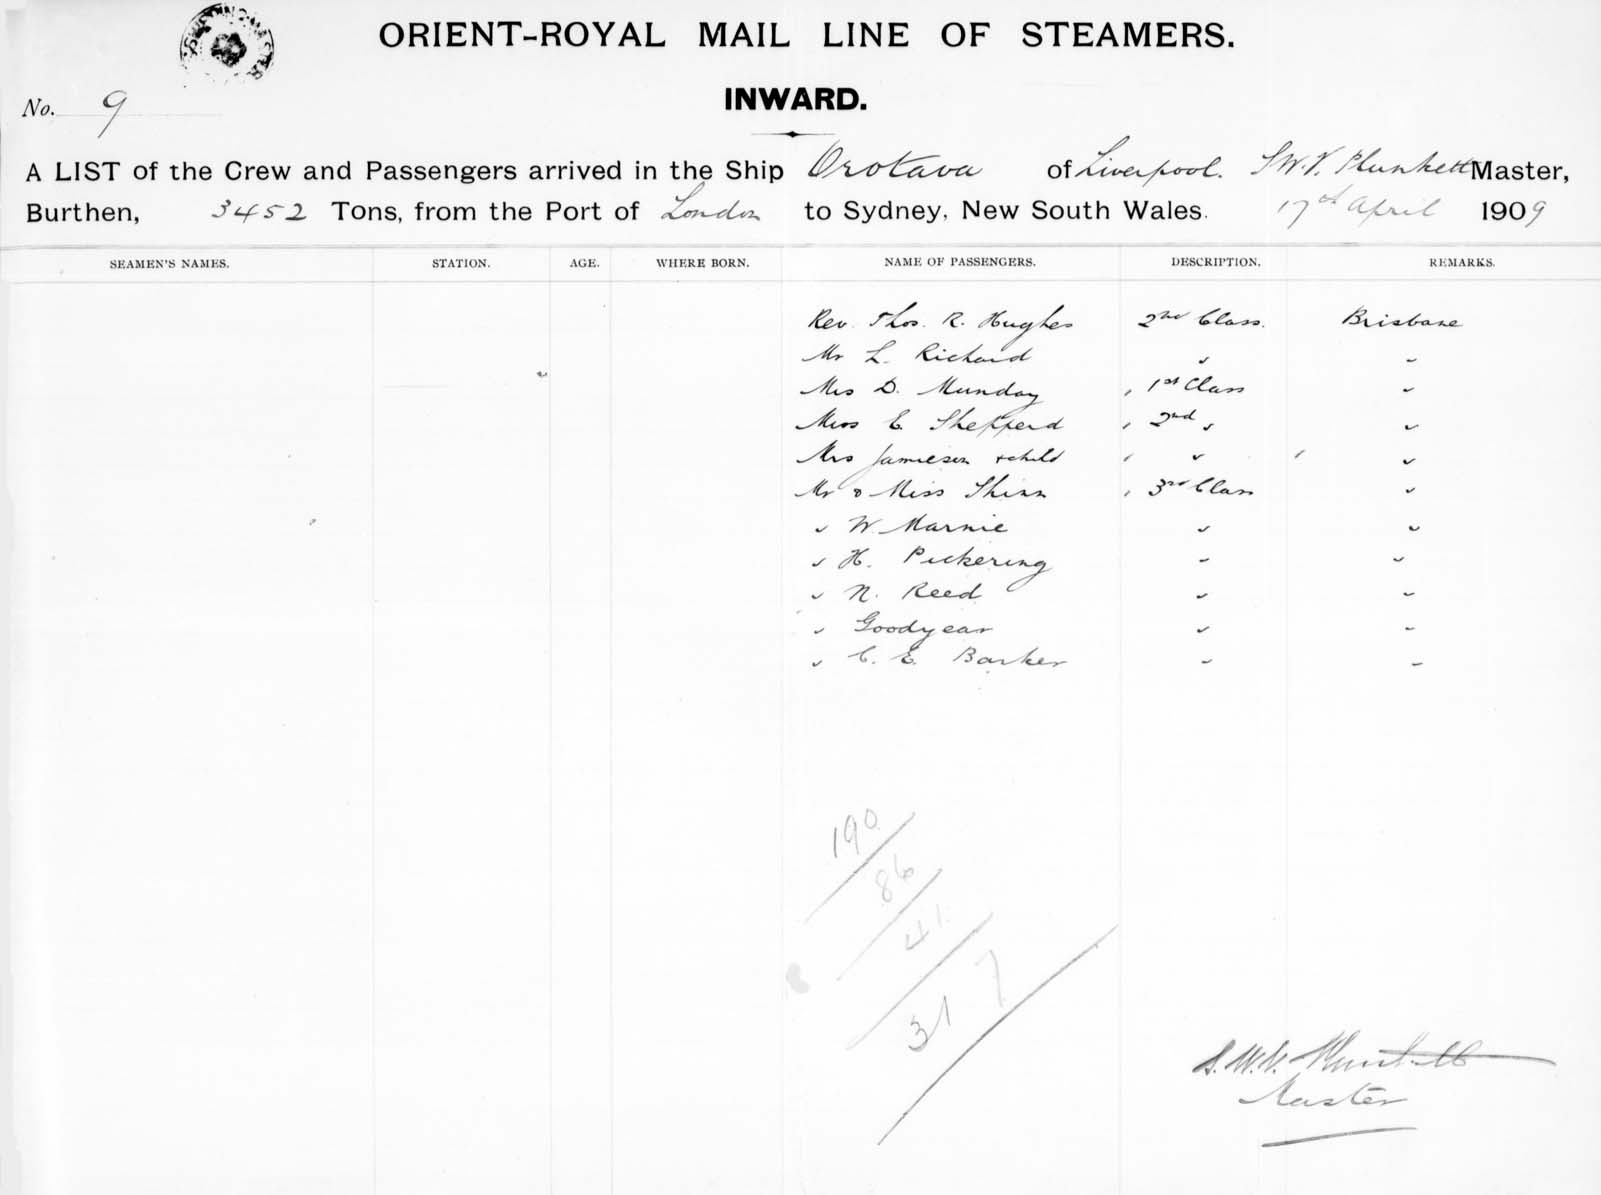 ORIENT-ROYAL MAIL LINE OF STEAMERS.
INWARD.
No. 9
A LIST of the Crew and Passengers arrived in the Ship Orotava of Liverpool. S.W.V. Plunkett Master,
Burthen, 3452 Tons, from the Port of London to Sydney, New South Wales. 17th April 1909
SEAMEN'S NAMES. STATION. AGE. WHERE BORN. NAME OF PASSENGERS. DESCRIPTION. REMARKS.
Rev. Thos. R. Hughes 2nd Class. Brisbane
Mr L. Richard " "
Mrs D. Munday 1st Class "
Miss E Shepperd 2nd " "
Mrs Jamieson + child " "
Mr & Miss Shinn 3rd Class "
" W. Marnie " "
" H. Pickering " "
" N. Reed " "
" Goodyear " "
" C. E. Barker " "
190
86
41
317
S.W.V. Plunkett
Master